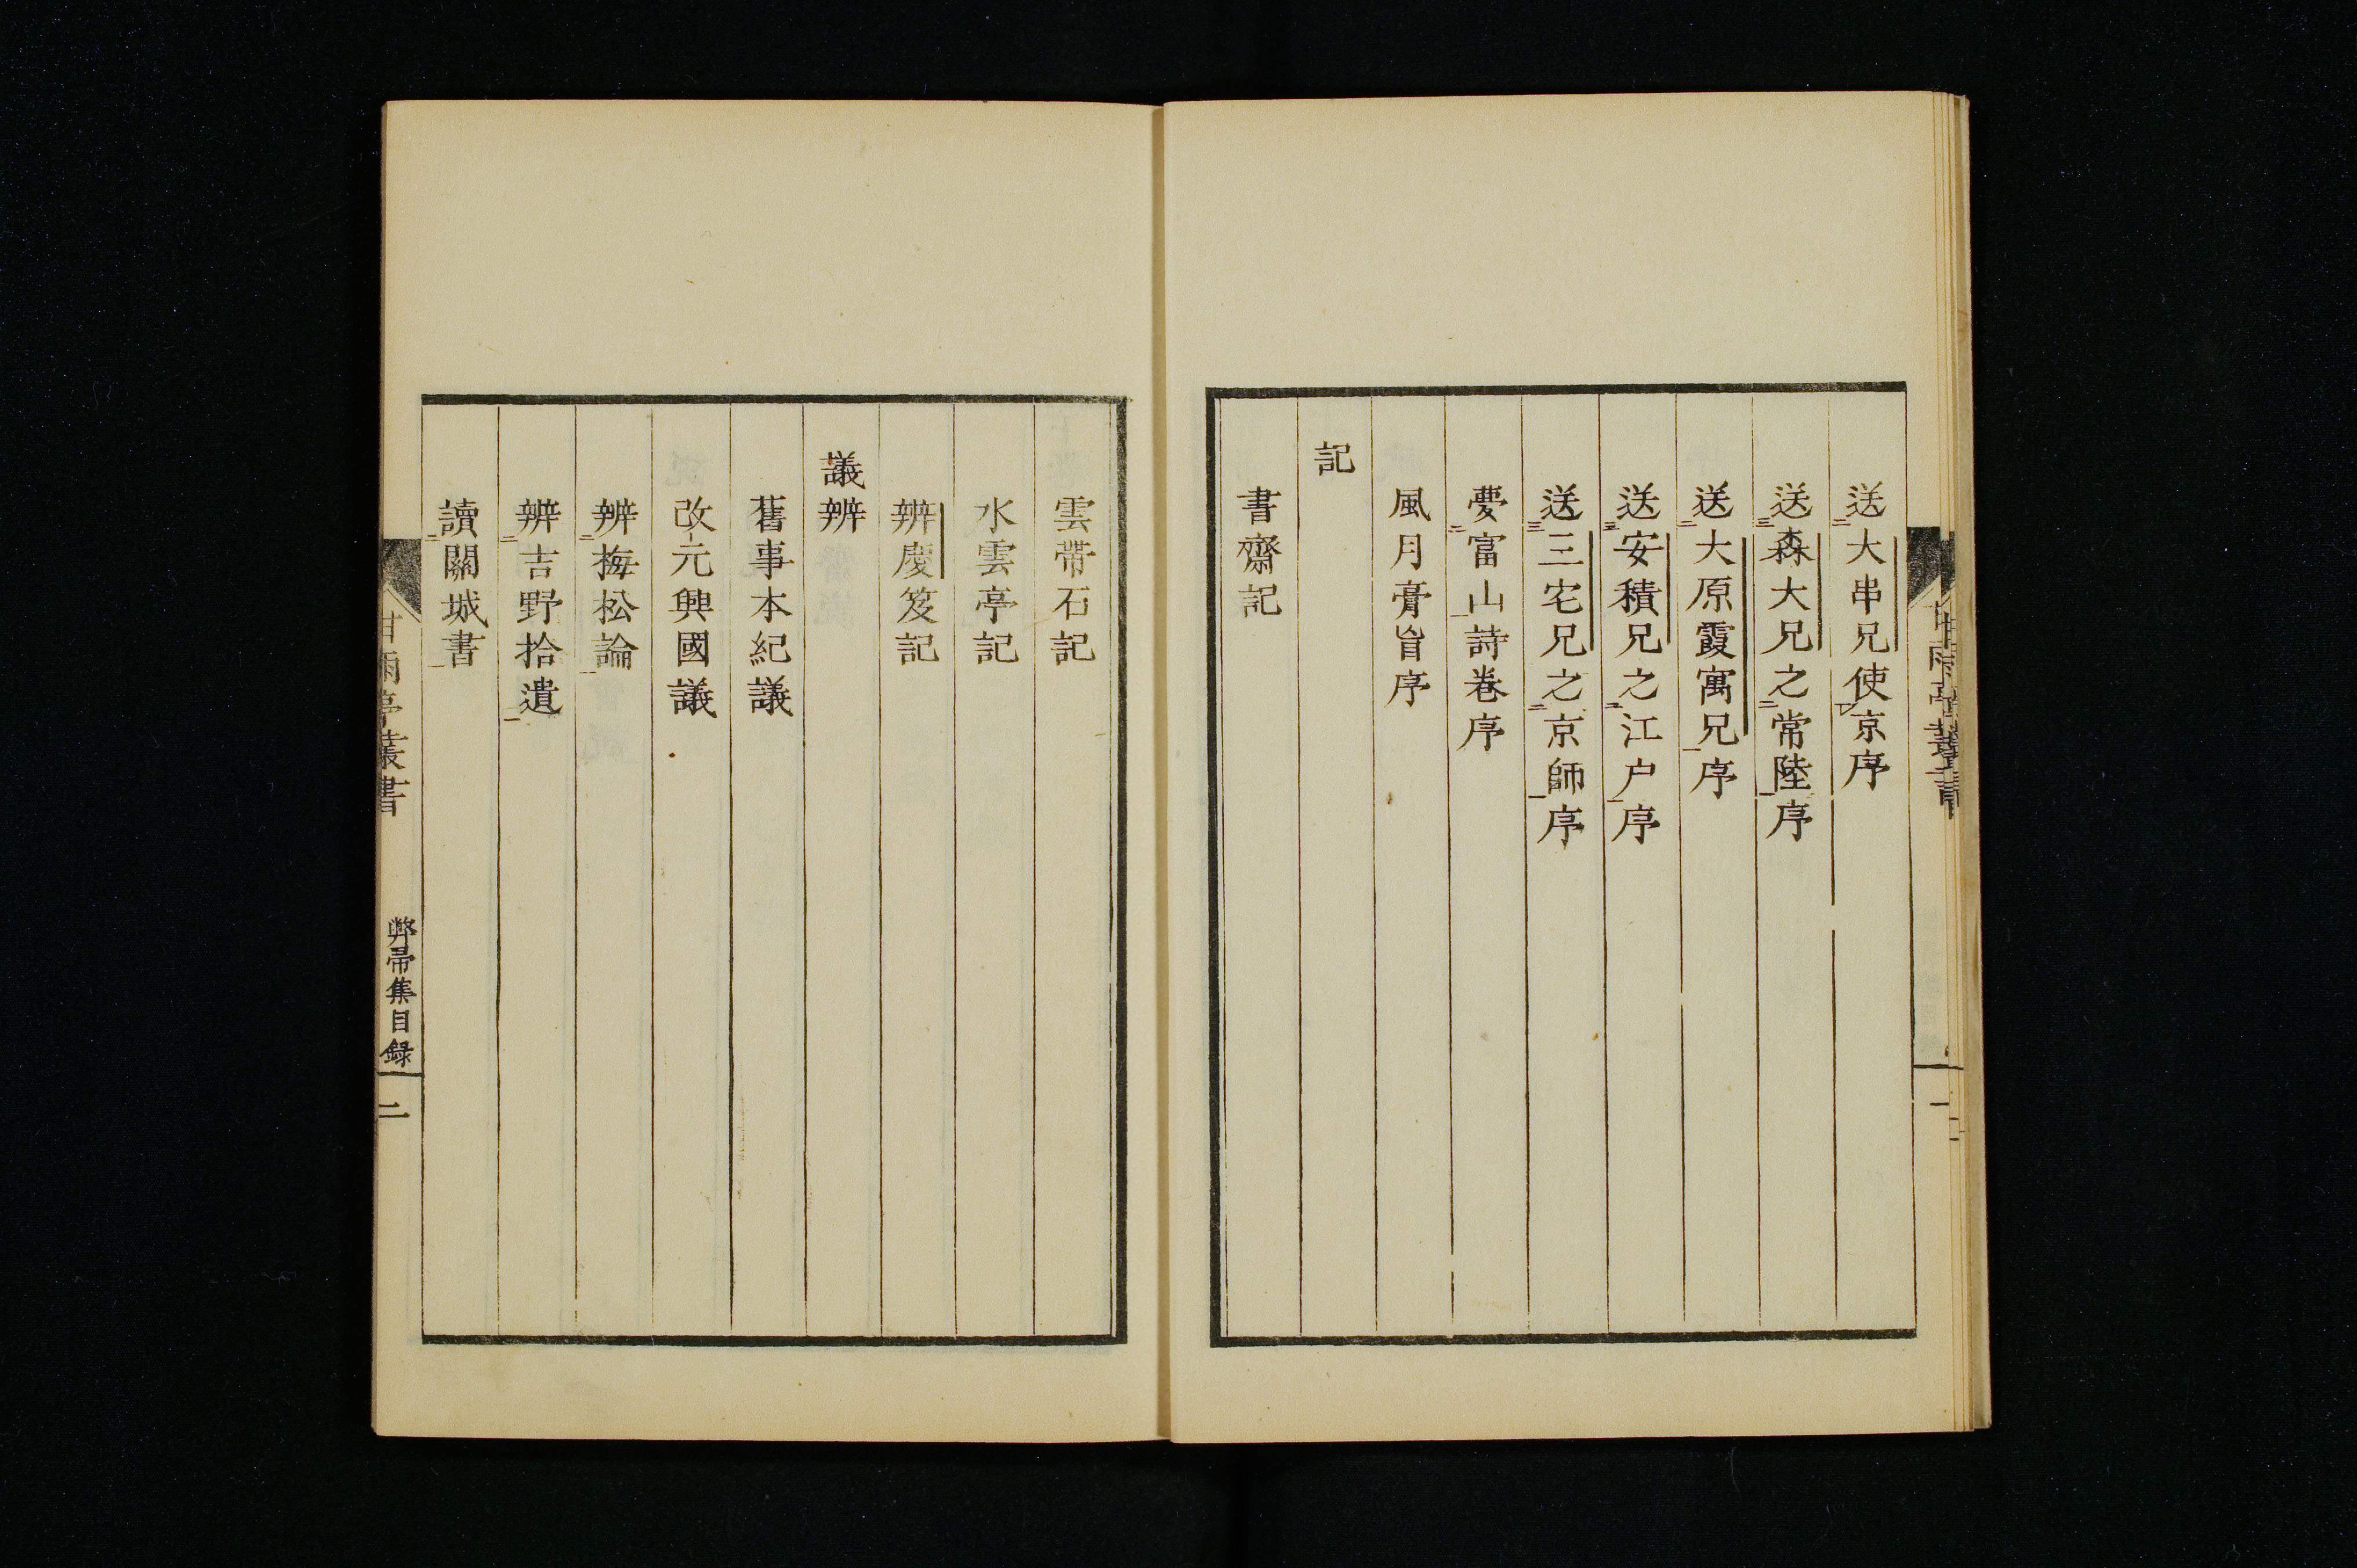 送大串兄使京序
送森大兄之常陸序
送大原霞寓兄序
送安積兄之江户序
送三宅兄之京師序
夢富山詩卷序
風月膏肓序
記
書齋記
雲帶石記
水雲亭記
辨慶笈記
議辨
舊事本紀議
改元興國議
辨梅松論
辨吉野拾遺
讀關城書
甘雨亭叢書
弊帚集目錄
二